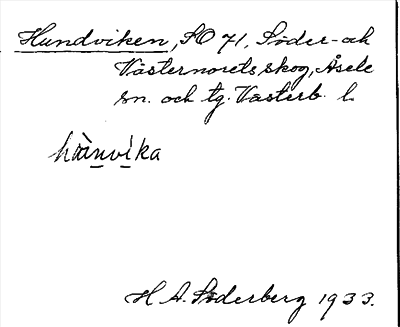 Hundviken, SO 71, Söder- och
Västernorets skog, Åsele
sn. och tg. Västerb. l.
hànvika
H A. Söderberg 1933.